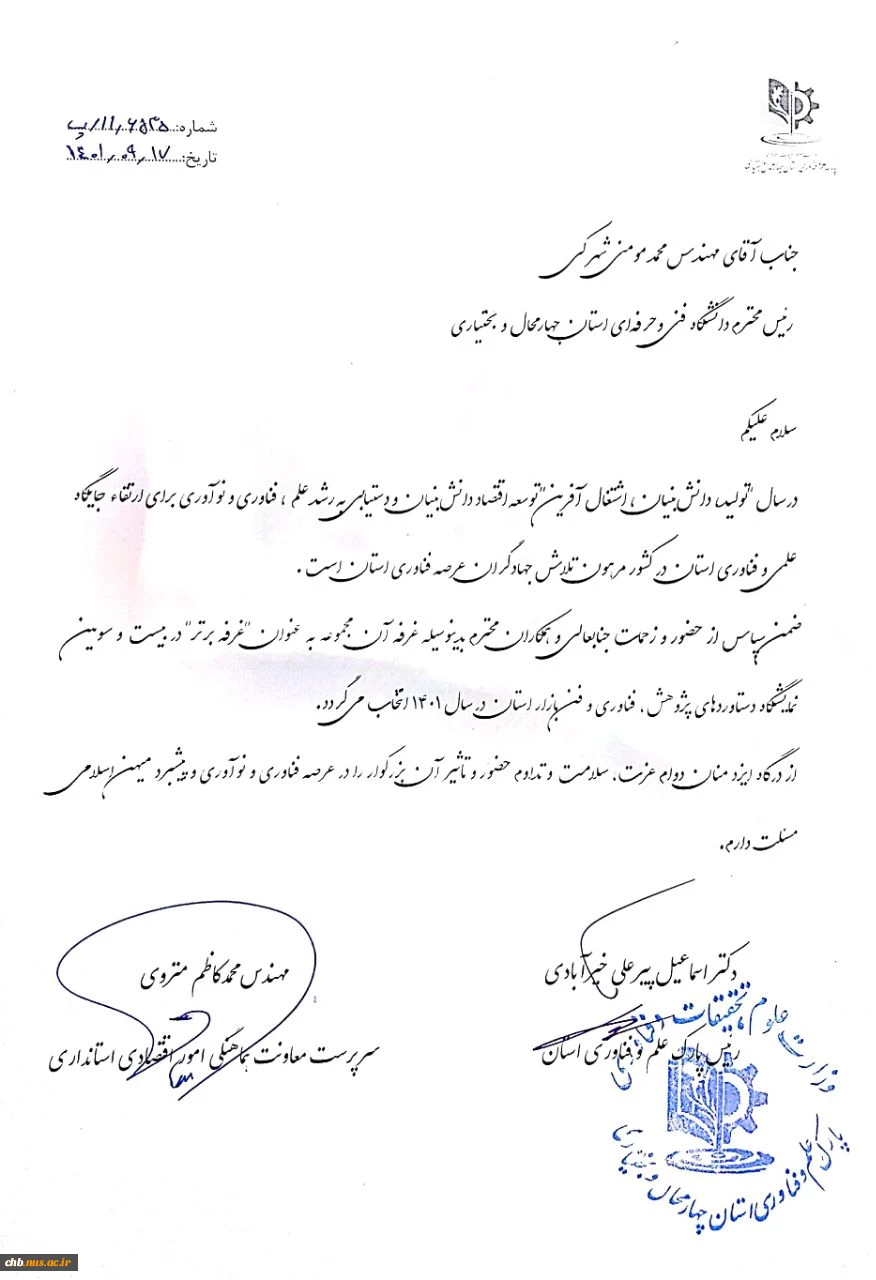 شماره: ۱۱/۶۵۴۵/پ
تاریخ: ۱۴۰۱/۰۹/۱۷
پارک علم و فناوری استان چهارمحال و بختیاری
جناب آقای مهندس محمد مومنی شهرکی
رئیس محترم دانشگاه فنی و حرفه‌ای استان چهارمحال و بختیاری
سلام علیکم
در سال "تولید، دانش‌بنیان، اشتغال آفرین" توسعه اقتصاد دانش‌بنیان و دستیابی به رشد علم، فناوری و نوآوری برای ارتقاء جایگاه
علمی و فناوری استان در کشور مرهون تلاش جهادگران عرصه فناوری استان است.
ضمن سپاس از حضور و زحمات جنابعالی و همکاران محترم بدینوسیله غرفه آن مجموعه به عنوان "غرفه برتر" در بیست و سومین
نمایشگاه دستاوردهای پژوهش، فناوری و فن بازار استان در سال ۱۴۰۱ انتخاب می‌گردد.
از درگاه ایزد منان دوام عزت، سلامت و تداوم حضور و تأثیر آن بزرگوار را در عرصه فناوری و نوآوری و پیشبرد میهن اسلامی
مسئلت دارم.
دکتر اسماعیل پیرعلی خیرآبادی
رئیس پارک علم و فناوری استان
مهندس محمدکاظم متروی
سرپرست معاونت هماهنگی امور اقتصادی استانداری
وزارت علوم، تحقیقات و فناوری
پارک علم و فناوری استان چهارمحال و بختیاری
chb.nus.ac.ir